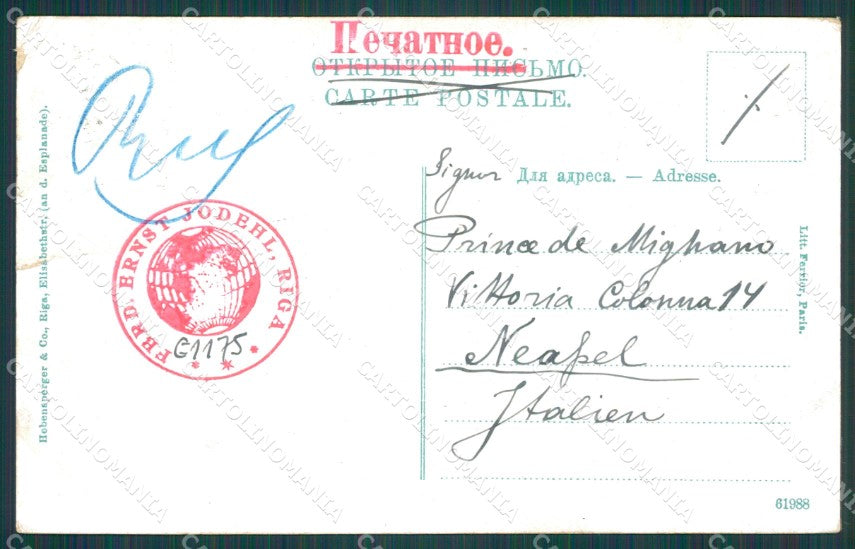 Печатное.
ОТКРЫТОЕ ПИСЬМО.
CARTE POSTALE.
Signor Для адреса. — Adresse.
Prince de Mighano
Vittoria Colonna 14
Neapel
Italien
FERD. ERNST JODEHL, RIGA
G1175
Hebensperger & Co., Riga, Elisabethstr. (an d. Esplanade).
Litt. Ferrier, Paris.
61988
CARTOLINOMANIA